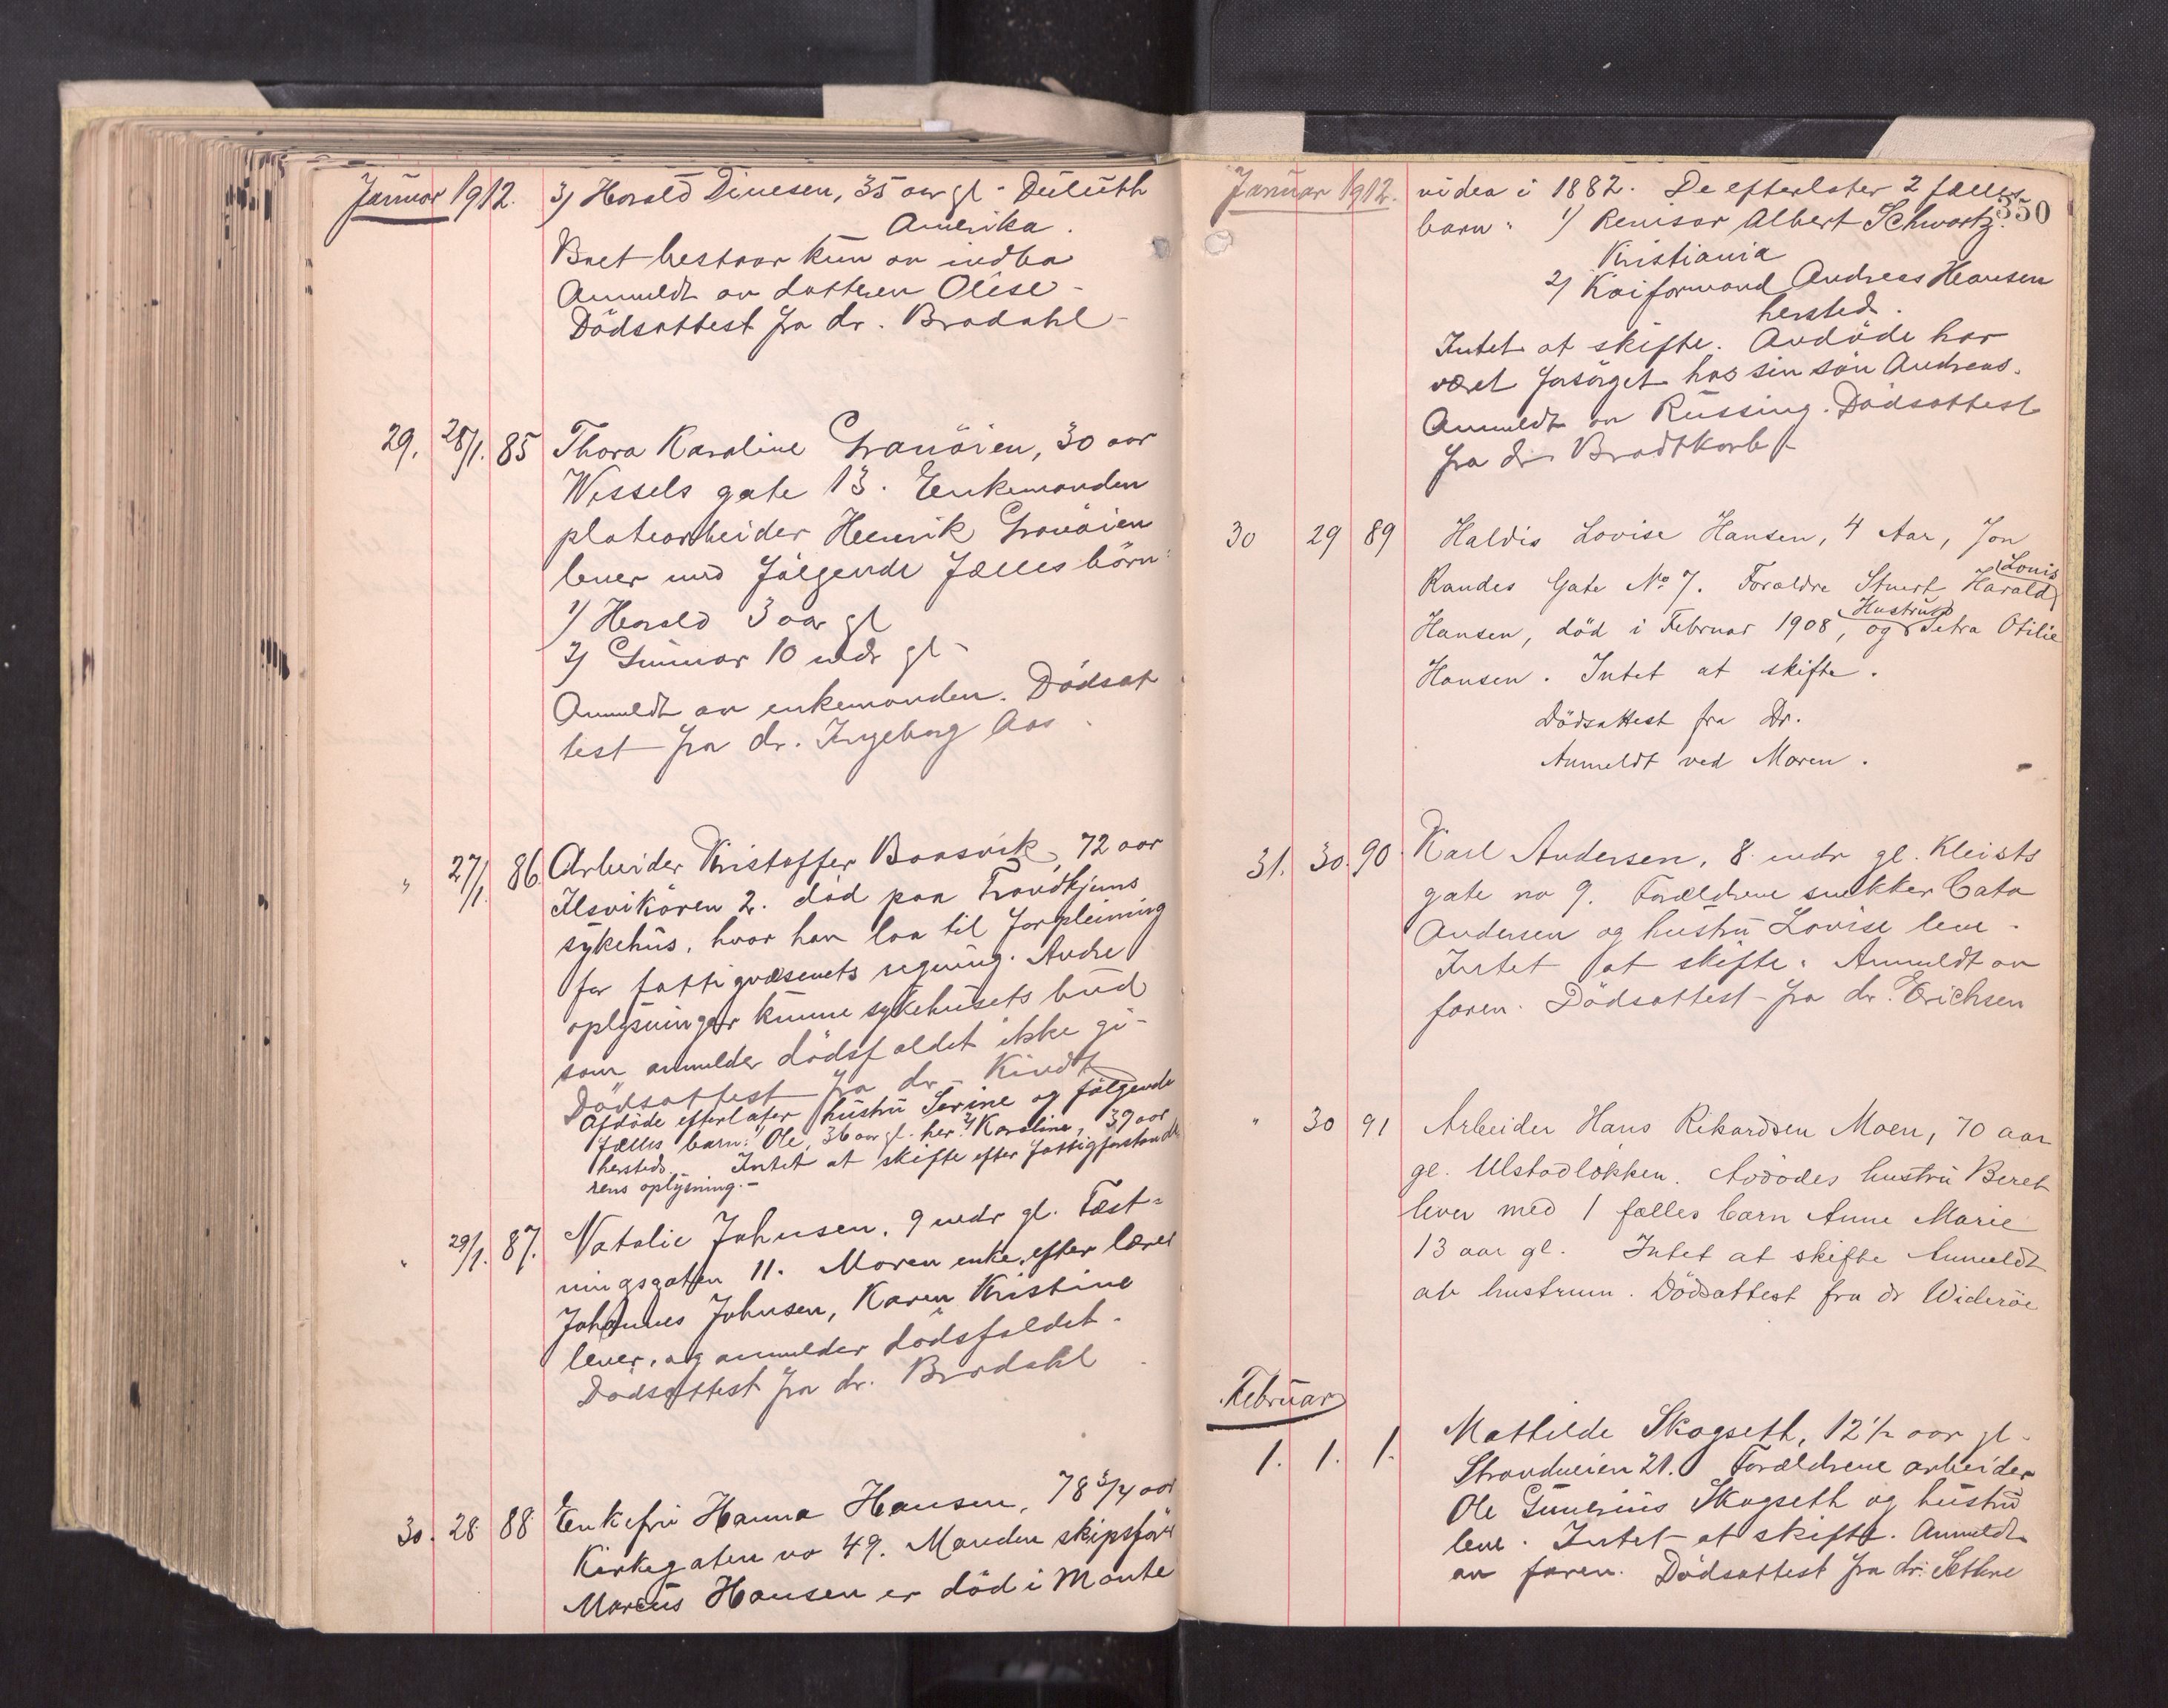 Januar 1912. 3) Harald Dinesen, 35 aar gl - Duluth
Amerika.
Boet bestaar kun av indbo
Anmeldt av datteren Olise -
Dödsattest fra dr. Brodahl -
29. 28/1. 85 Thora Karoline Granöien, 30 aar
Wessels gate 13. Enkemanden
platearbeider Henrik Granöien
lever med følgende fælles börn:
1) Harald 3 aar gl
2) Gunnar 10 mdr gl -
Anmeldt av enkemanden. Dödsat
test fra dr. Ingeborg Aas.
" 27/1. 86. Arbeider Kristoffer Baasvik, 72 aar
Ilsvikören 2. död paa Trondhjems
sykehus, hvor han laa til forpleining
for fattigvæsenets regning. Andre
oplysninger kunne sykehusets bud
som anmelder dödsfaldet ikke gi -
Dödsattest fra dr - Kindt
Afdöde efterlater hustru Serine og følgende
fælles barn: 1) Ole, 36 aar gl. her 2) Karoline, 39 aar
hersteds. - Intet at skifte efter fattigforstande
rens oplysning. -
" 29/1. 87. Natalie Johnsen, 9 mdr gl. Fæst-
ningsgaten 11. Moren enke efter lærer
Johannes Johnsen, Karen Kristine
lever, og anmelder dödsfaldet.
Dödsattest fra dr. Brodahl
30. 28. 88 Enkefru Hanna Hansen, 78 3/4 aar
Kirkegaten no 49. Manden skipsför
Marius Hansen er död i Monte
350
Januar 1912. video i 1882. De efterlater 2 fælles
barn: 1) Revisor Albert Schwartz.
Kristiania
2) Kaiformand Andreas Hansen
hersteds.
Intet at skifte. Avdöde har
været forsörget hos sin sön Andreas.
Anmeldt av Russing. Dödsattest
fra dr Bradtkorb -
30 29 89 Haldis Lovise Hansen, 4 Aar, Jon
Raudes Gate No 7. Foraldre Stuert Harald
Louis
Hansen, död i Februar 1908, og Hustru Petra Otilie
Hansen. Intet at skifte.
Dödsattest fra Dr.
Anmeldt ved Moren.
31. 30. 90. Karl Andersen, 8 mdr gl. Kleists
gate no 9. Forældrene snekker Cato
Andersen og hustru Lovise leve -
Intet at skifte. Anmeldt av
faren. Dödsattest fra dr. Erichsen
" 30 91 Arbeider Hans Rikardsen Moen, 70 aar
gl. Ulstadlökken. Avdödes hustru Beret
lever med 1 fælles barn Anne Marie
13 aar gl. Intet at skifte Anmeldt
av hustruen. Dödsattest fra dr Wideröe
Februar
1. 1. 1. Mathilde Skogseth, 12 1/2 aar gl -
Strandveien 21. Forældrene arbeider
Ole Gunerius Skogseth og hustru
leve. Intet at skifte. Anmeldt
av faren. Dödsattest fra dr. Sethre